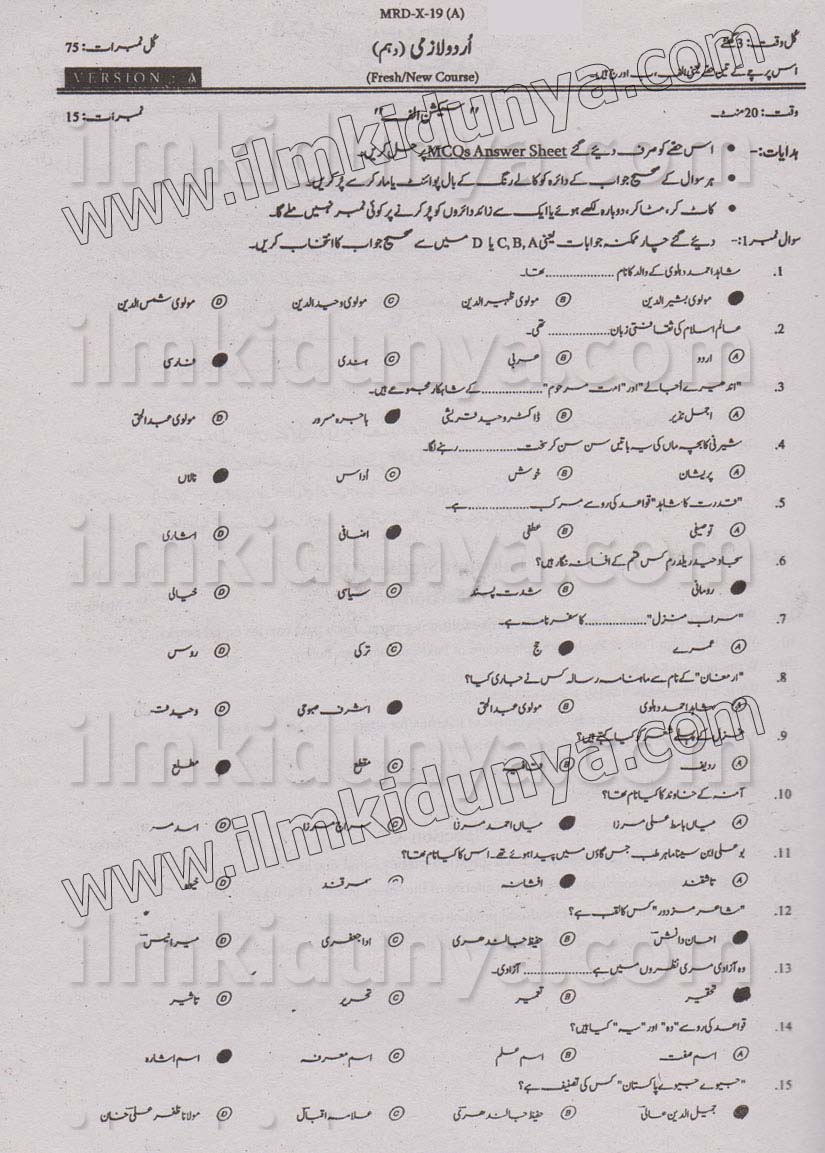 MRD-X-19 (A)
کل وقت: 3 گھنٹے اُردو لازمی (دہم) کل نمبرات: 75
اس پرچے کے تین حصے یعنی الف، ب اور ج ہیں۔ (Fresh/New Course) VERSION : A
وقت: 20 منٹ۔ "سیکشن الف" نمبرات: 15
ہدایات:- • اس حصے کو صرف دیئے گئے MCQs Answer Sheet پر حل کریں۔
• ہر سوال کے صحیح جواب کے دائرہ کو کالے رنگ کے بال پوائنٹ یا مارکر سے پُر کریں۔
• کاٹ کر، مٹا کر، دوبارہ لکھے ہوئے یا ایک سے زائد دائروں کو پُر کرنے پر کوئی نمبر نہیں ملے گا۔
سوال نمبر 1:- دیئے گئے چار ممکنہ جوابات یعنی C, B, A یا D میں سے صحیح جواب کا انتخاب کریں۔
1. شاہد احمد دہلوی کے والد کا نام .................... تھا۔
مولوی بشیر الدین B مولوی ظہیر الدین C مولوی وحید الدین D مولوی شمس الدین
2. عالم اسلام کی ثقافتی زبان .................... تھی۔
A اردو B عربی C ہندی فارسی
3. "اندھیرے اُجالے" اور "امت مرحوم" .................... کے شاہکار مجموعے ہیں۔
A اجمل نذیر B ڈاکٹر وحید قریشی ہاجرہ مسرور D مولوی عبدالحق
4. شیرنی کا بچہ ماں کی یہ باتیں سن سن کر سخت .................... رہنے لگا۔
A پریشان B خوش C اُداس نالاں
5. "قدرت کا شاہد" قواعد کی رو سے مرکب .................... ہے۔
A توصیفی B عطفی اضافی D اشاری
6. سجاد حیدر یلدرم کس قسم کے افسانہ نگار ہیں؟
رومانی B شدت پسند C سیاسی D خیالی
7. "سراب منزل" .................... کا سفرنامہ ہے۔
A عمرے حج C ترکی D روس
8. "ارمغان" کے نام سے ماہنامہ رسالہ کس نے جاری کیا؟
A شاہد احمد دہلوی B مولوی عبدالحق اشرف صبوحی D وحید
9. غزل کے پہلے شعر کو کیا کہتے ہیں؟
A ردیف B قافیہ C مقطع مطلع
10. آمنہ کے خاوند کا کیا نام تھا؟
A میاں باسط علی مرزا میاں احمد مرزا C سراج مرزا D اسد
11. بو علی ابن سینا ماہر طب جس گاؤں میں پیدا ہوئے تھے۔ اس کا کیا نام تھا؟
A تاشقند افشانہ C سمرقند D
12. "شاعر مزدور" کس کا لقب ہے؟
احسان دانش B حفیظ جالندھری C ادا جعفری D میر انیس
13. وہ آزادی مری نظروں میں ہے .................... آزادی۔
تحقیر B تعمیر C تحریر D تاثیر
14. قواعد کی رو سے "وہ" اور "یہ" کیا ہیں؟
A اسم صفت B اسم علم C اسم معرفہ اسم اشارہ
15. "جیوے جیوے پاکستان" کس کی تصنیف ہے؟
جمیل الدین عالی B حفیظ جالندھری C علامہ اقبال D مولانا ظفر علی خان
www.ilmkidunya.com
www.ilmkidunya.com
ilmkidunya.com
ilmkidunya.com
ilmkidunya.com
ilmkidunya.com
ilmkidunya.com